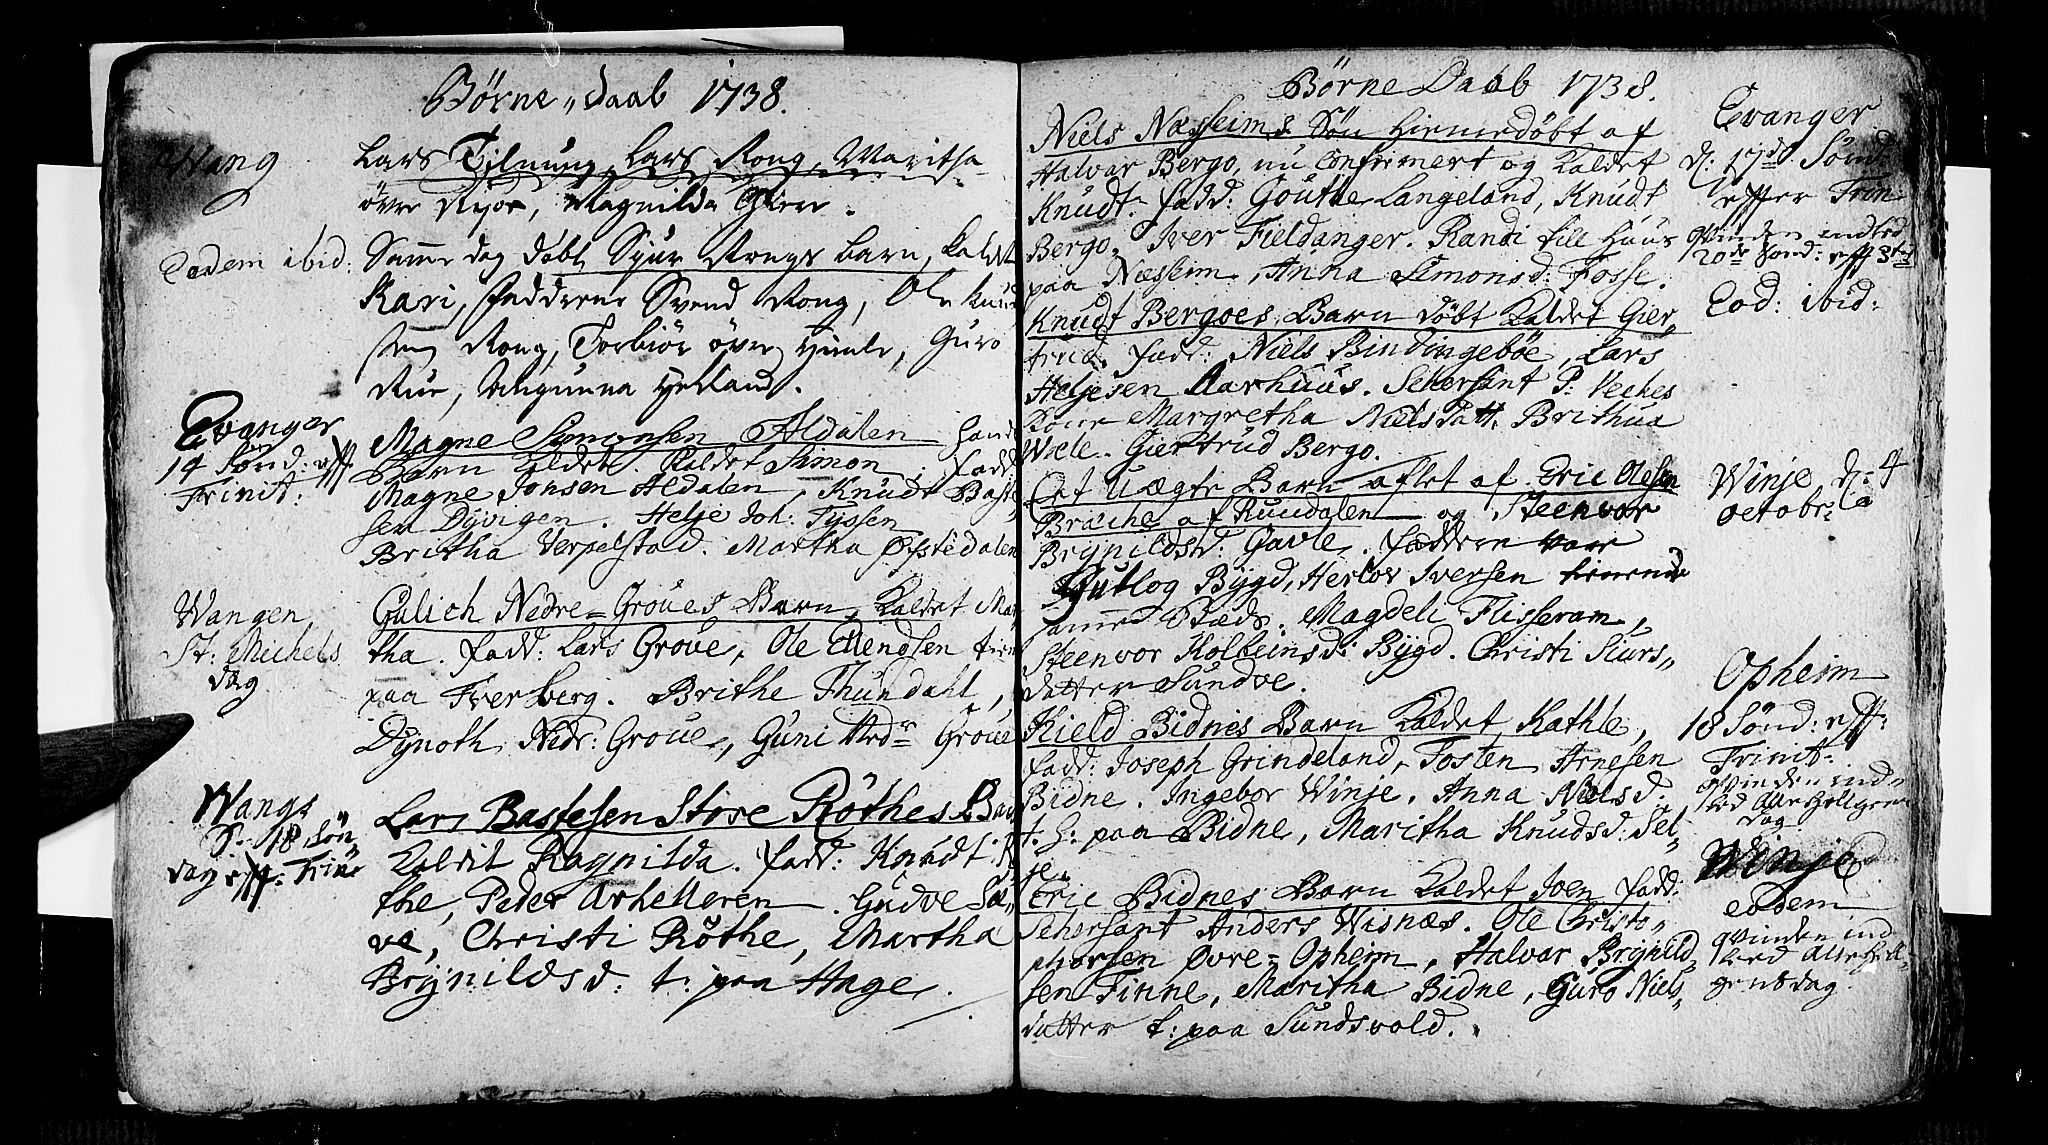 Börne-daab 1738.
Wang
Lars Tilnung, Lars Rong, Maritha
övre Ryoe, Magnilda Gierr.
Eodem ibid:
Samme dag döbt Syur Rongs barn, kaldet
Kari, Fadderne Svend Rong, Ole Knud
sen Rong, Torbiör övre Himle, Guro
Rue, Angunna Helland.
Evanger
14 Sönd: eff
Trinit:
Magne Simonsen Aldalen
Barn Kaldet. Kaldet Simon. fadd
Magne Jonsen Aldalen, Knudt Baste
sen Dyvigen. Helje Joh: Tyssen
Britha Verpelstad. Martha Øfstedalen
Wangen
St: Michels
dag
Gulich Nedre=Groues Barn, Kaldet Mar
tha. fadd: Lars Groue, Ole Ellendsen tien
paa Tverberg. Brithe Thundahl,
Dynoth Nedr: Groue, Guni Nedr Groue
Wangs
S. 18 Sön,,
dag eff: Trin:
Lars Bastesen Store Röthes Bar
Kaldet Ragnilda. fadd: Knudt R
the, Peder Arhelleren. Gudve Sæ,,
ve, Christi Röthe, Martha
Brynildsd: t: paa Hage.
Börne Daab 1738.
Niels Næsseims Sön hiemedöbt af
Halvar Bergo, nu Confirmert og Kaldet
Knudt. fadd: Gouthe Langeland, Knudt
Bergo, Iver Fieldanger. Randi till huus
paa Næsseim, Anna Simonsd: Fosse.
Evanger
d: 17de Sönd
effter Trin
qvinden indled
20de sönd: eff 3tis
Knudt Bergoes Barn döbt Kaldet Gier,,
trud. fadd: Niels Bindingeböe, Lars
Heljesen Aarhuus. Sehersant P: Veches
Kone Margretha Nielsdatt. Brithua
Wæle. Giertrud Bergo.
Eod: ibid:
Det Uægte Barn aflet af Eric Olesen
Bræche af Ruudalen og Steenvor
Brynildsd: Gavle. faddere vare
Gutlog Bygd, Herlov Iversen tienende
samme Stæds. Magdeli Flisseram,
Steenvor Kolbeinsd: Bygd. Christi Siurs,,
datter Sundve.
Winje d: 4
octobr:
Kield Bidnes Barn Kaldet Kathle,
fadd: Joseph Grindeland, Tosten Arnesen
Bidne. Ingebor Winje. Anna Nielsd.
t. h: paa Bidne, Maritha Knudsd: Sel,,
je.
Opheim
18 Sönd: eff:
Trinit:
qvinden ind,,
led Alle helgens
dag.
Eric Bidnes Barn Kaldet Joen fadd:
Sehersant Anders Wisnæs. Ole Christo,,
phersen Øvre=Opheim, Halvar Brynild,,
sen Finne, Maritha Bidne, Guro Niels,,
datter t: paa Sundsvold.
Winje
eodem
qvinden ind
led Alle hell,,
gensdag.